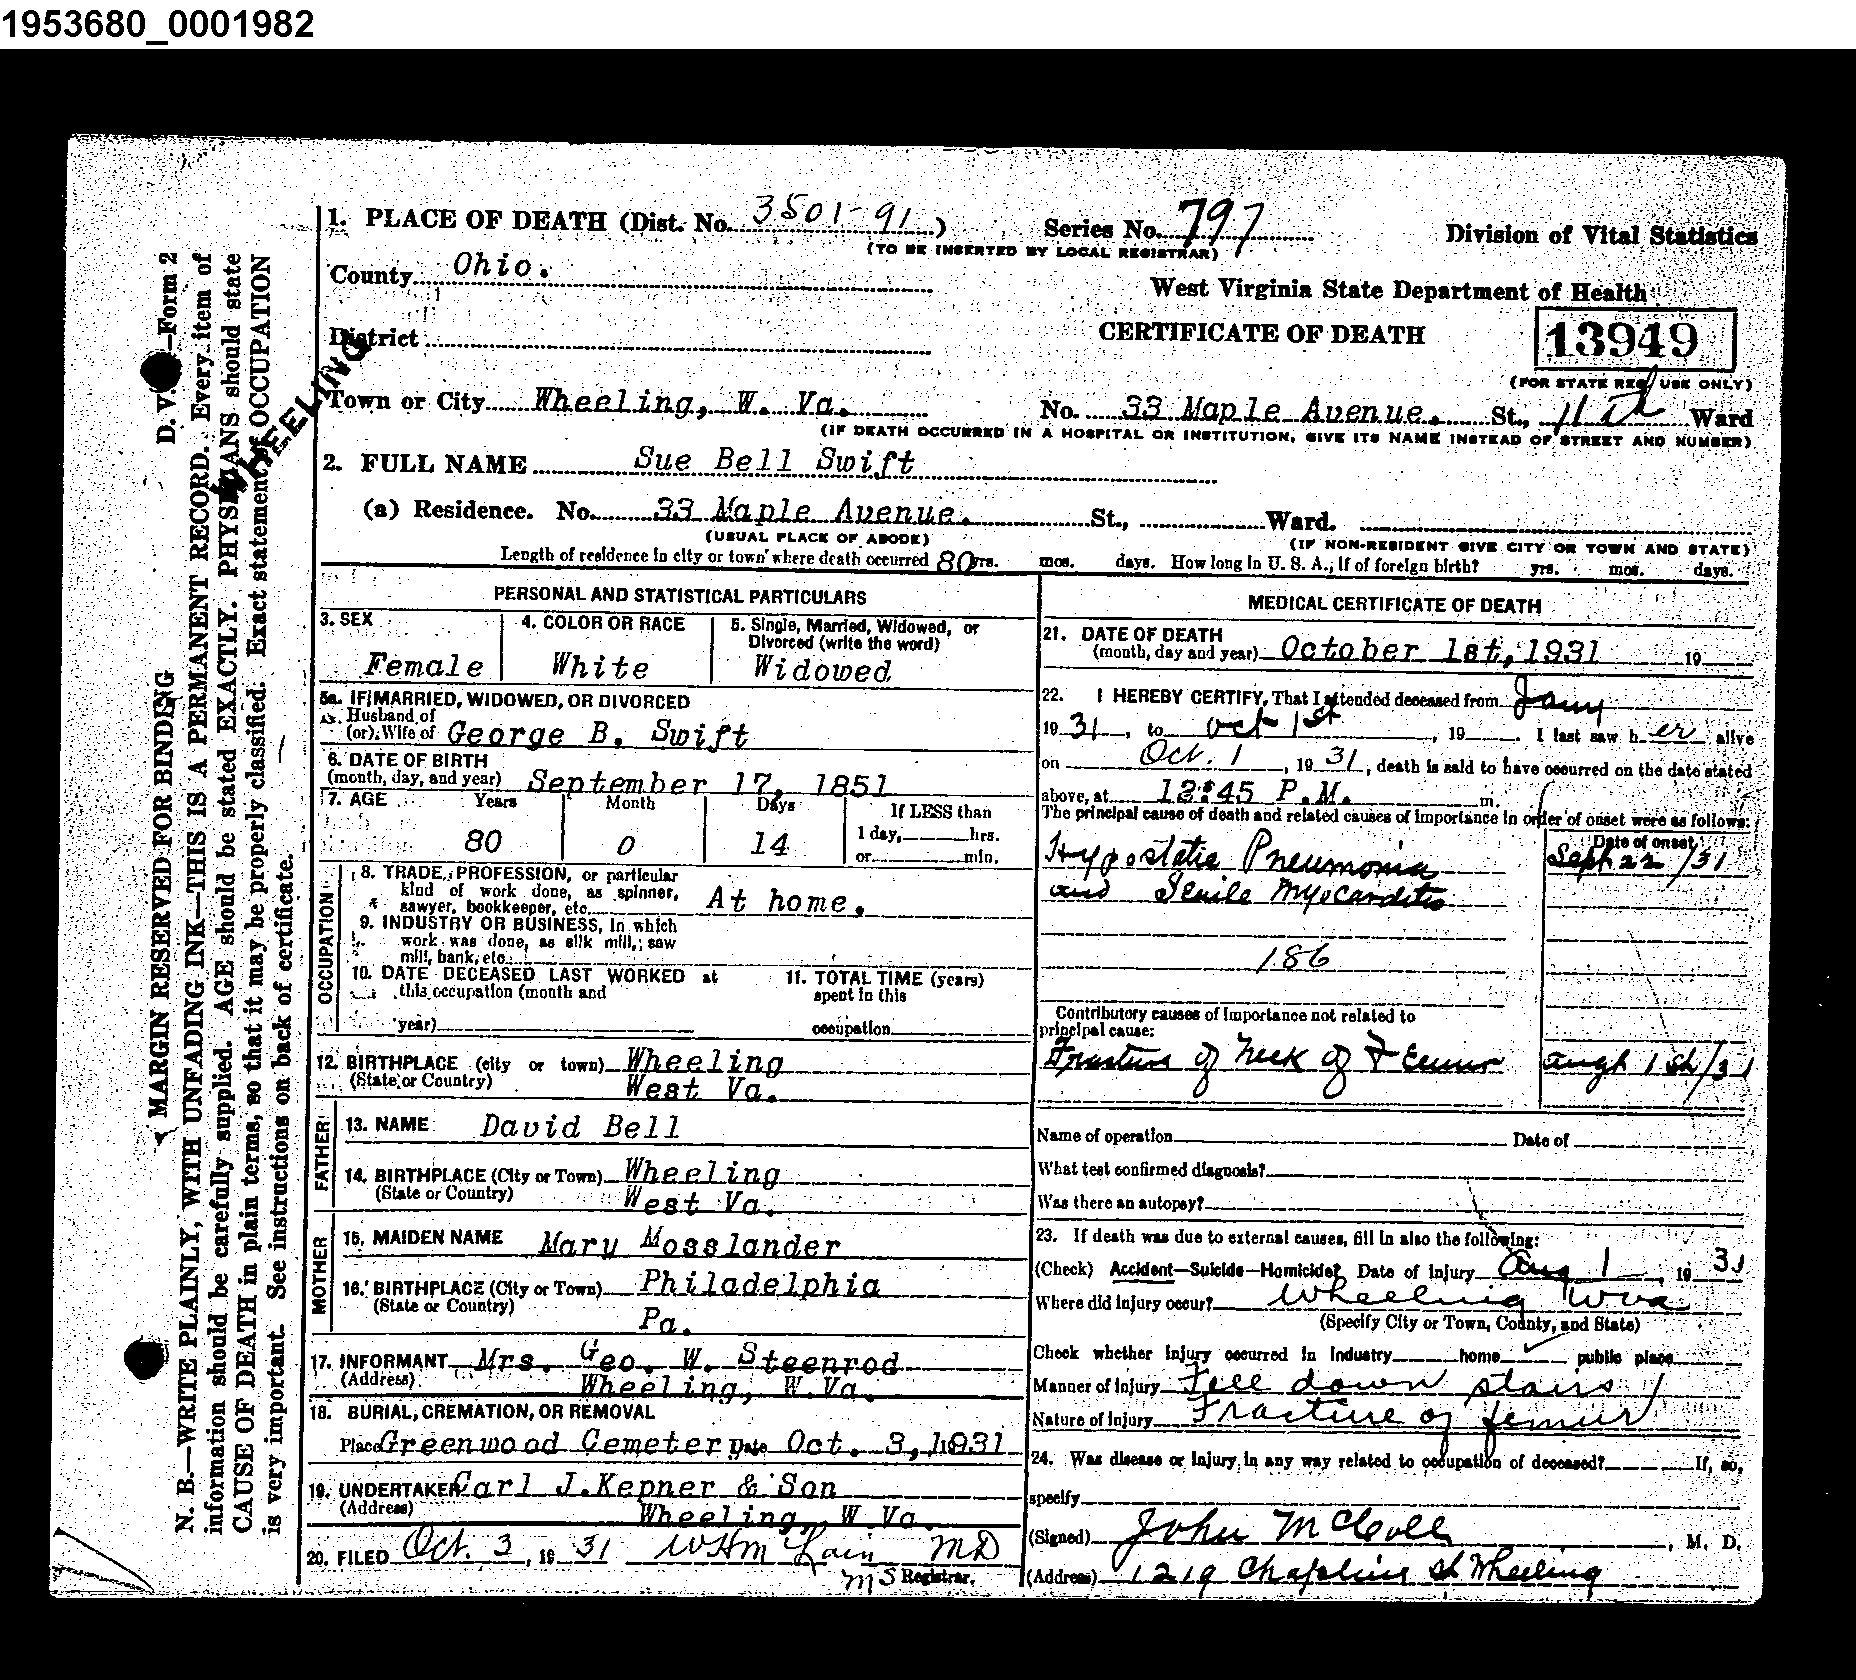 1953680_0001982
1. PLACE OF DEATH (Dist. No. 3501-91) Series No. 797 Division of Vital Statistics
(TO BE INSERTED BY LOCAL REGISTRAR)
County Ohio.
West Virginia State Department of Health
District CERTIFICATE OF DEATH 13949
WHEELING
(FOR STATE REG USE ONLY)
Town or City Wheeling, W. Va. No. 33 Maple Avenue. St., 11th Ward
(IF DEATH OCCURRED IN A HOSPITAL OR INSTITUTION, GIVE ITS NAME INSTEAD OF STREET AND NUMBER)
2. FULL NAME Sue Bell Swift
(a) Residence. No. 33 Maple Avenue. St., Ward.
(USUAL PLACE OF ABODE) (IF NON-RESIDENT GIVE CITY OR TOWN AND STATE)
Length of residence in city or town where death occurred 80 yrs. mos. days. How long in U. S. A., if of foreign birth? yrs. mos. days.
PERSONAL AND STATISTICAL PARTICULARS
3. SEX
Female
4. COLOR OR RACE
White
5. Single, Married, Widowed, or
Divorced (write the word)
Widowed
5a. IF MARRIED, WIDOWED, OR DIVORCED
Husband of
(or) Wife of George B. Swift
6. DATE OF BIRTH
(month, day, and year) September 17, 1851
7. AGE Years Month Days If LESS than
1 day, hrs.
80 0 14
or min.
OCCUPATION
8. TRADE, PROFESSION, or particular
kind of work done, as spinner,
sawyer, bookkeeper, etc. At home.
9. INDUSTRY OR BUSINESS, in which
work was done, as silk mill, saw
mill, bank, etc.
10. DATE DECEASED LAST WORKED at
this occupation (month and
year)
11. TOTAL TIME (years)
spent in this
occupation
12. BIRTHPLACE (city or town) Wheeling
(State or Country) West Va.
FATHER
13. NAME David Bell
14. BIRTHPLACE (City or Town) Wheeling
(State or Country) West Va.
MOTHER
15. MAIDEN NAME Mary Mosslander
16. BIRTHPLACE (City or Town) Philadelphia
(State or Country) Pa.
17. INFORMANT Mrs. Geo. W. Steenrod
(Address) Wheeling, W.Va.
18. BURIAL, CREMATION, OR REMOVAL
Place Greenwood Cemetery Date Oct. 3, 1931
19. UNDERTAKER Carl J. Kepner & Son
(Address) Wheeling, W.Va.
20. FILED Oct. 3, 19 31 MD
MS Registrar.
MEDICAL CERTIFICATE OF DEATH
21. DATE OF DEATH
(month, day and year) October 1st, 1931 19
22. I HEREBY CERTIFY, That I attended deceased from Jany
19 31, to Oct 1st, 19 . I last saw her alive
on Oct. 1, 19 31, death is said to have occurred on the date stated
above, at 12:45 P.M. m.
The principal cause of death and related causes of importance in order of onset were as follows:
Date of onset
Hypostatic Pneumonia Sept 22/31
and Senile Myocarditis
186
Contributory causes of importance not related to
principal cause:
Fracture of Neck of Femur Aug 1st/31
Name of operation Date of
What test confirmed diagnosis?
Was there an autopsy?
23. If death was due to external causes, fill in also the following:
(Check) Accident—Suicide—Homicide? Date of injury Aug 1, 19 31
Where did injury occur? Wheeling W Va
(Specify City or Town, County, and State)
Check whether injury occurred in industry home ✓ public place
Manner of injury Fell down stairs
Nature of injury Fracture of femur
24. Was disease or injury in any way related to occupation of deceased? If, so,
specify
(Signed) John McColl, M. D.
(Address) 1219 Chapline St Wheeling
D. V. S.—Form 2
MARGIN RESERVED FOR BINDING
N. B.—WRITE PLAINLY, WITH UNFADING INK—THIS IS A PERMANENT RECORD. Every item of
information should be carefully supplied. AGE should be stated EXACTLY. PHYSICIANS should state
CAUSE OF DEATH in plain terms, so that it may be properly classified. Exact statement of OCCUPATION
is very important. See instructions on back of certificate.